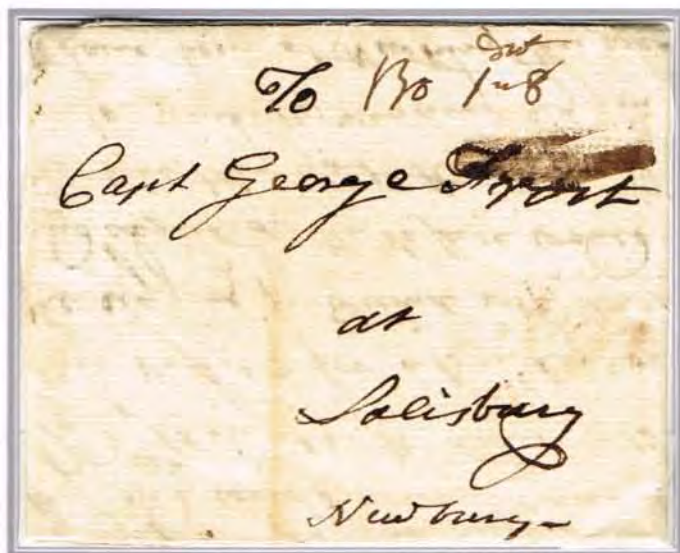 Dwt
To Bo 1"8
Capt George Frost
at
Salisbury
Newbury-